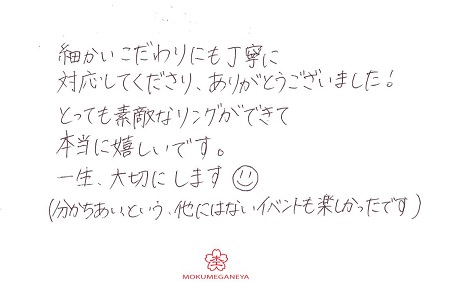 細かいこだわりにも丁寧に
対応してくださり、ありがとうございました！
とっても素敵なリングができて
本当に嬉しいです。
一生、大切にします
(分かちあいという、他にはないイベントも楽しかったです)
MOKUMEGANEYA